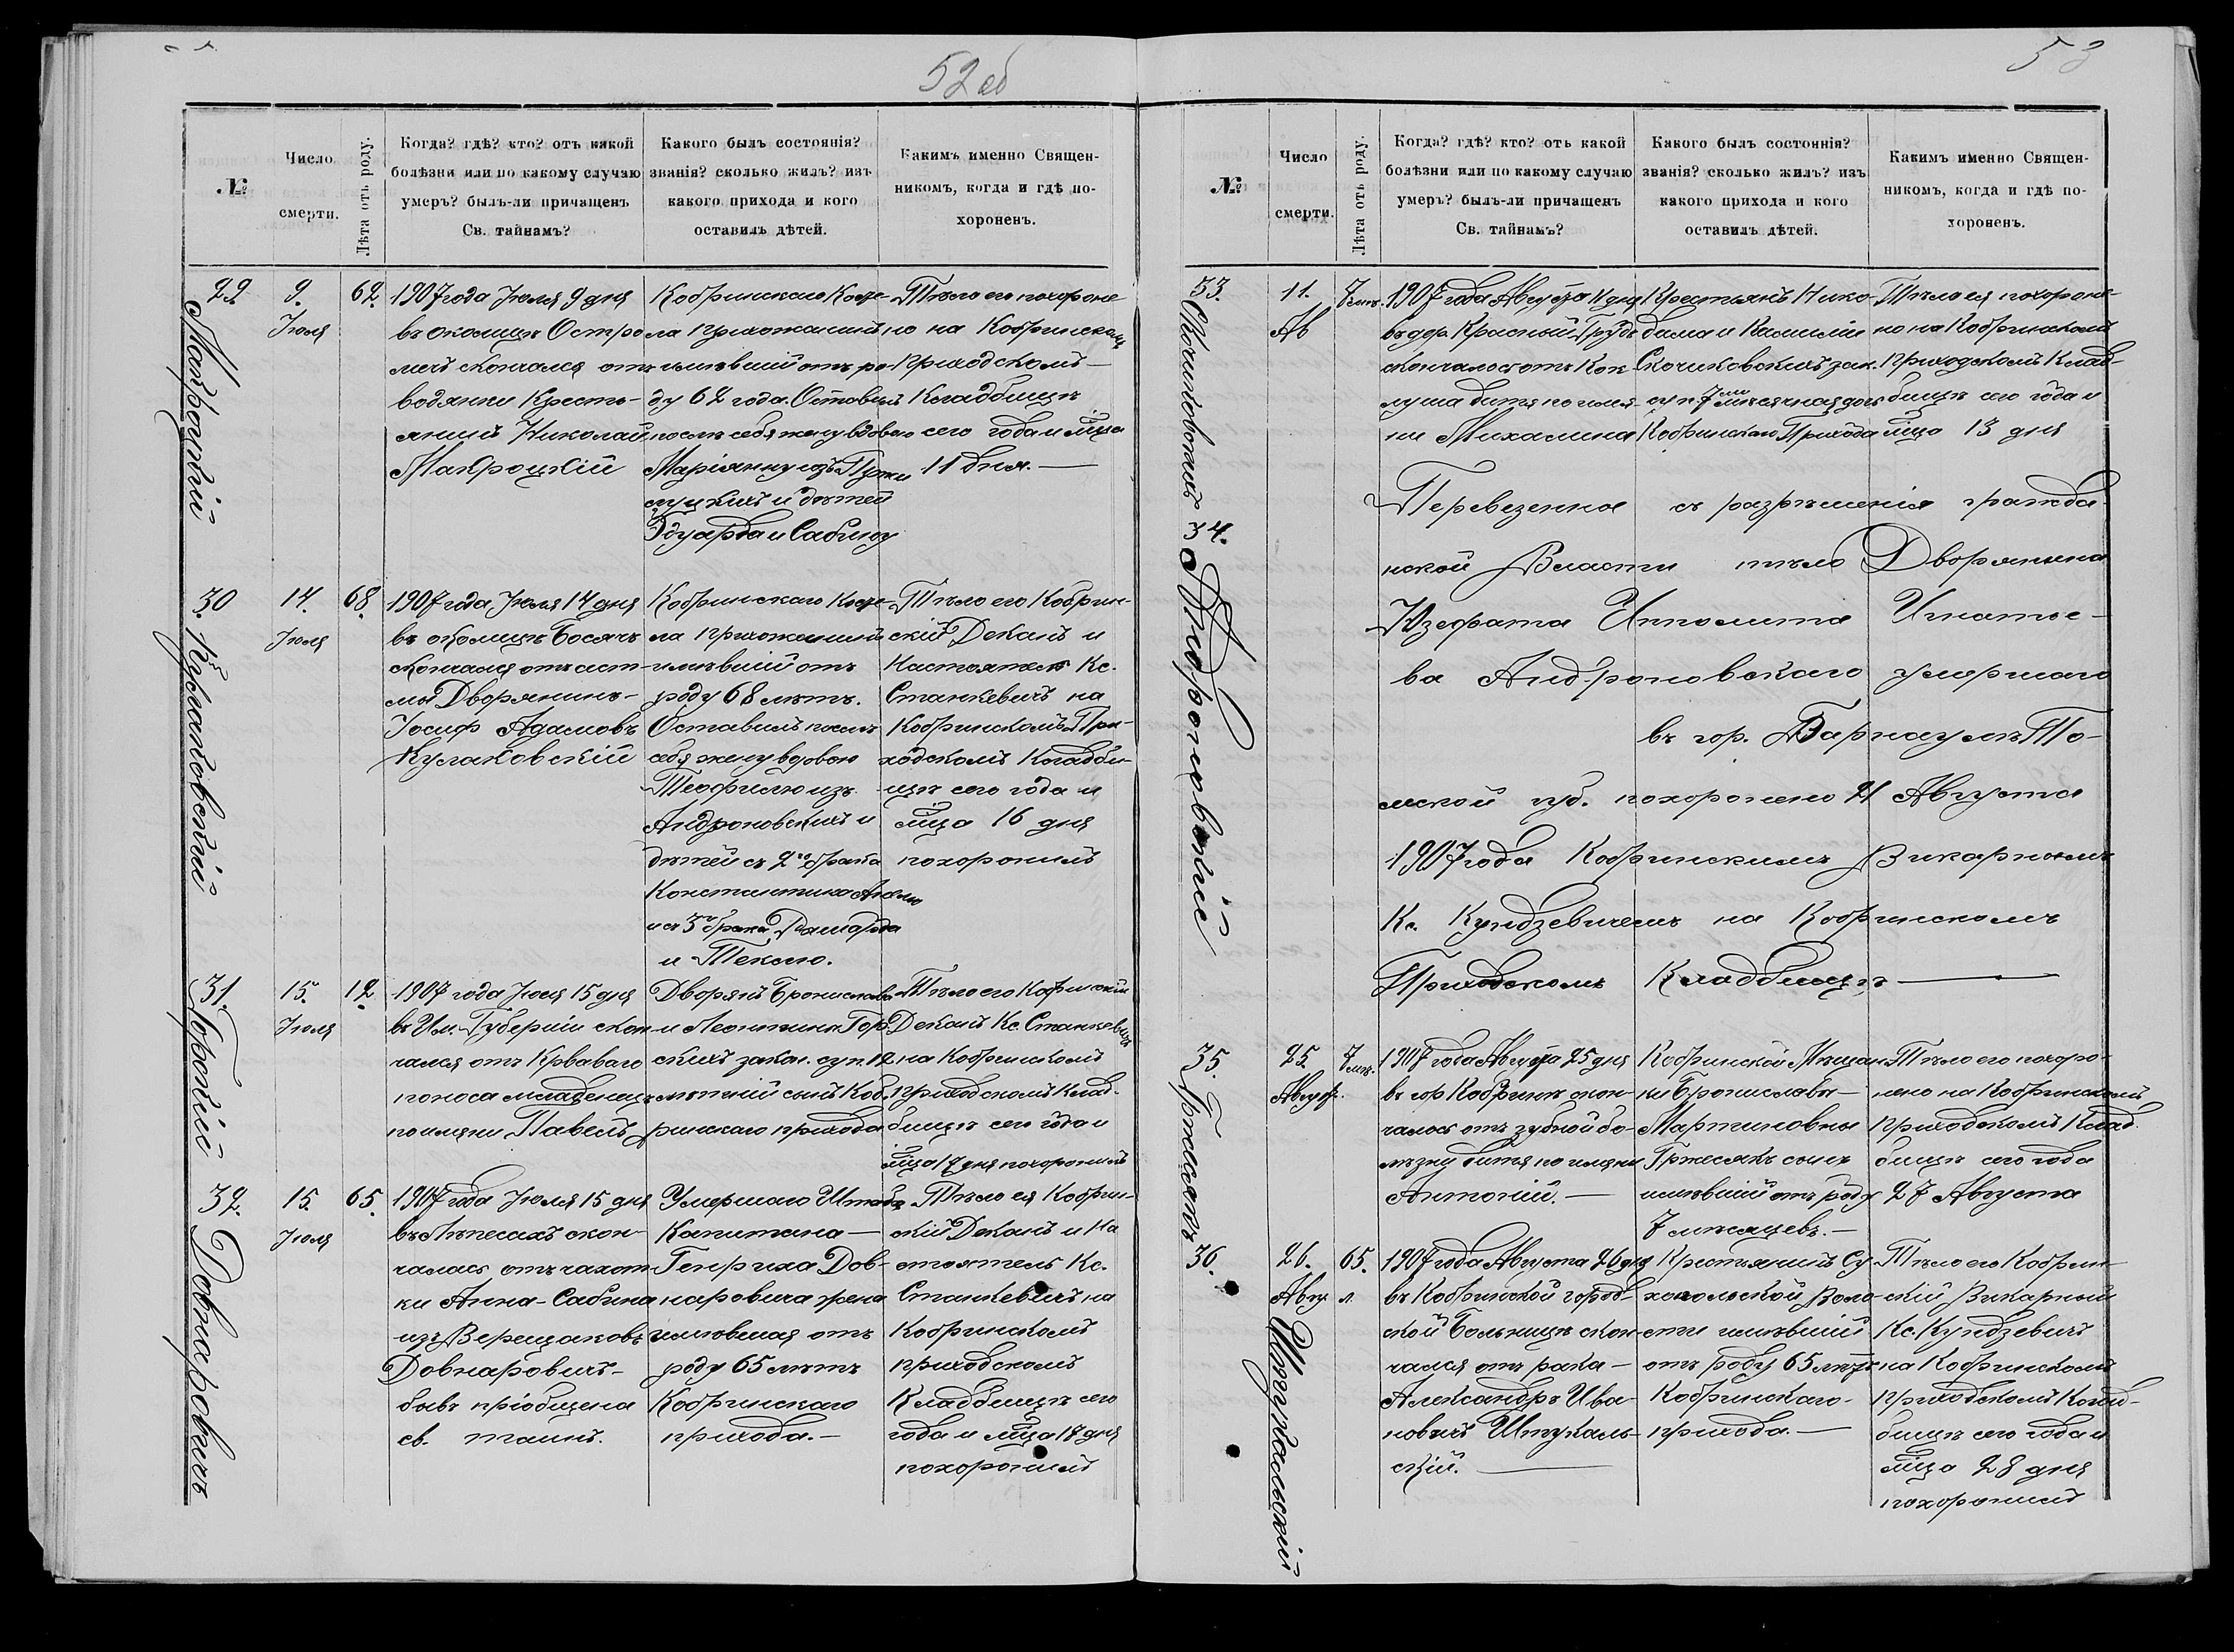 52 об
№
Число
смерти.
Лѣта отъ роду.
Когда? гдѣ? кто? отъ какой
болѣзни или по какому случаю
умеръ? былъ-ли причащенъ
Св. тайнамъ?
Какого былъ состоянія?
званія? сколько жилъ? изъ
какого прихода и кого
оставилъ дѣтей.
Какимъ именно Священ-
никомъ, когда и гдѣ по-
хороненъ.
29.
9.
Іюля
62.
1907 года Іюля 9 дня
въ околицѣ Остро
мечъ скончался отъ
водянки Кресть-
янинъ Николай
Макроцкій
Кобринскаго Косте-
ла прихожанинъ
имѣвшій отъ ро-
ду 62 года. Оставилъ
послѣ себя жену вдовою
Маріянну изъ
и дѣтей
Эдуарда и Сабину
Тѣло его похороне
но на Кобринскомъ
Приходскомъ
Кладбищѣ
сего года и мца
11 дня.
30.
Кулаковскій
14.
Іюля
68.
1907 года Іюля 14 дня
въ околицѣ Босячъ
скончался отъ аст-
мы Дворянинъ
Іосифъ Адамовъ
Кулаковскій
Кобринскаго Косте-
ла прихожанинъ
имѣвшій отъ
роду 68 лѣтъ.
Оставилъ послѣ
себя жену вдовою
Теофилю изъ
Андроновскихъ и
дѣтей съ 2го брака
Константина
и съ 3го брака
и Теклю.
Тѣло его Кобрин-
скій Деканъ и
Настоятель Кс.
Станкевичъ на
Кобринскомъ При-
ходскомъ Кладби-
щѣ сего года и
мца 16 дня
похоронилъ
31.
Горскій
15.
Іюля
12.
1907 года Іюля 15 дня
въ Им. Губерніи скон-
чался отъ Кроваваго
поноса младенецъ
по имени Павелъ
Дворянъ Бронислава
и Леонтины Гор-
скихъ закон. суп. 12
лѣтній сынъ Коб-
ринскаго прихода
Тѣло его Кобринскій
Деканъ Кс. Станкевичъ
на Кобринскомъ
приходскомъ Клад-
бищѣ сего года и
мца 17 дня похоронилъ
32.
Довнаровичъ
15.
Іюля
65.
1907 года Іюля 15 дня
въ Лѣпесахъ скон-
чалась отъ чахот-
ки Анна-Сабина
изъ Верещаковъ
Довнаровичъ-
бывъ пріобщена
св. таинъ.
Умершаго Штабсъ
Капитана
Генриха Дов-
наровича жена
имѣвшая отъ
роду 65 лѣтъ
Кобринскаго
прихода.
Тѣло ея Кобрин-
скій Деканъ и На
стоятель Кс.
Станкевичъ на
Кобринскомъ
приходскомъ
Кладбищѣ сего
года и мца 17 дня
похоронилъ
53
№
Число
смерти.
Лѣта отъ роду.
Когда? гдѣ? кто? отъ какой
болѣзни или по какому случаю
умеръ? былъ-ли причащенъ
Св. тайнамъ?
Какого былъ состоянія?
званія? сколько жилъ? изъ
какого прихода и кого
оставилъ дѣтей.
Какимъ именно Священ-
никомъ, когда и гдѣ по-
хороненъ.
33.
11.
Ав
7 мѣс.
1907 года Августа 11 дня
въ дер. Красный Грудъ
скончалось отъ Кок-
луша дитя по име-
ни Михалина
Крестьянъ Нико-
дима и Камиліи
Скочиковскихъ зак.
суп. 7ми мѣсячная дочь
Кобринскаго Прихода
Тѣло ея похороне-
но на Кобринскомъ
Приходскомъ Клад-
бищѣ сего года и
мца 13 дня
34.
Андроновскій
Перевезенное съ разрѣшенія граждан-
нской Власти тѣло Дворянина
Юзефата Ипполита Игнатье-
ва Андроновскаго умершаго
въ гор. Барнаулѣ То-
мской губ. похоронено 21 Августа
1907 года Кобринскимъ Викарнымъ
Кс. Кундзевичемъ на Кобринскомъ
Приходскомъ Кладбищѣ
35.
Гржесякъ
25.
Август.
7 мѣс.
1907 года Августа 25 дня
въ гор. Кобринѣ скон-
чалось отъ зубной бо-
лѣзни дитя по имени
Антоній.
Кобринской Мѣщан-
ки Брониславы
Мартиновны
Гржесякъ сынъ
имѣвшій отъ роду
7 мѣсяцевъ.
Тѣло его похоро-
нено на Кобринскомъ
Приходскомъ Клад-
бищѣ сего года
27 Августа
36.
Штукальскій
26.
Авгус.
65.
л.
1907 года Августа 26 дня
въ Кобринской город-
ской Больницѣ скон-
чался отъ рака
Александръ Ива-
новичъ Штукаль-
скій.
Крестьянинъ Су
хопольской Воло-
сти имѣвшій
отъ роду 65 лѣтъ
Кобринскаго
прихода.
Тѣло его Кобрин-
скій Викарный
Кс. Кундзевичъ
на Кобринскомъ
приходскомъ Клад-
бищѣ сего года и
мца 28 дня
похоронилъ